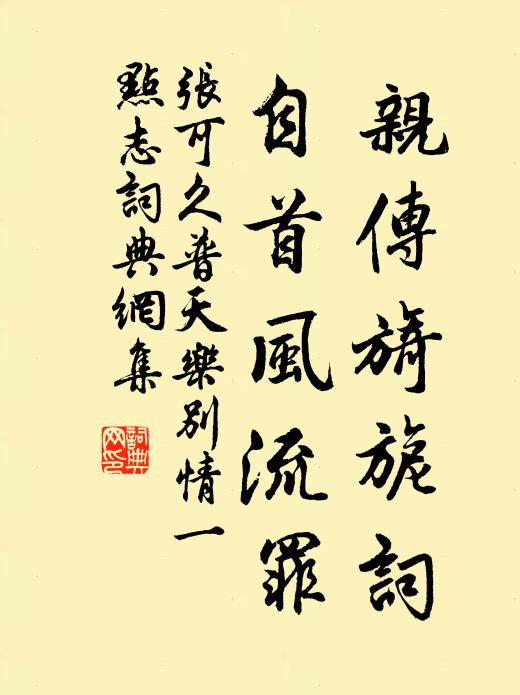 親傳旖旎詞
自首風流罪
張可久普天樂別情一
點志詞典網集
詞典網印